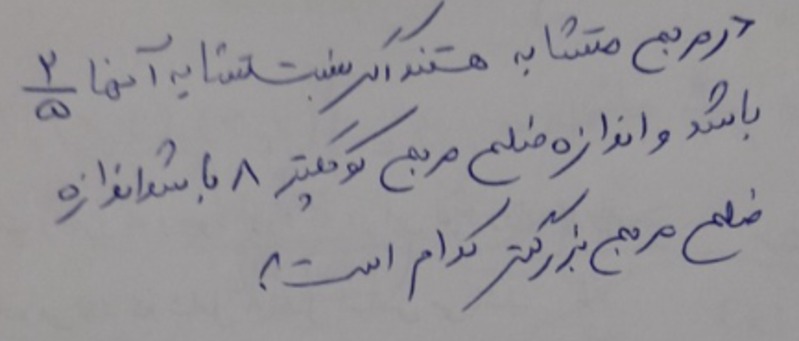 دو مربع متشابه هستند اگر نسبت تشابه آنها ۲/۵
باشد و اندازه ضلع مربع کوچکتر ۸ باشد اندازه
ضلع مربع بزرگتر کدام است؟